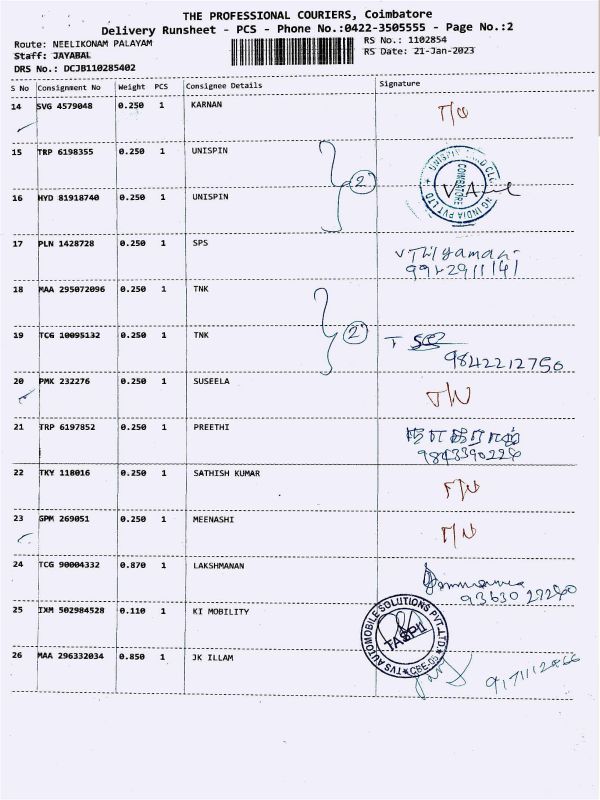 THE PROFESSIONAL COURIERS, Coimbatore
Delivery Runsheet - PCS - Phone No.:0422-3505555 - Page No.:2
Route: NEELIKONAM PALAYAM RS No.: 1102854
Staff: JAYABAL RS Date: 21-Jan-2023
DRS No.: DCJB110285402
S No Consignment No Weight PCS Consignee Details Signature
14 SVG 4579048 0.250 1 KARNAN
15 TRP 6198355 0.250 1 UNISPIN
2
16 HYD 81918740 0.250 1 UNISPIN
17 PLN 1428728 0.250 1 SPS
18 MAA 295072096 0.250 1 TNK
19 TCG 10095132 0.250 1 TNK 2
9842212750
20 PMK 232276 0.250 1 SUSEELA
21 TRP 6197852 0.250 1 PREETHI
22 TKY 118016 0.250 1 SATHISH KUMAR
23 GPM 269051 0.250 1 MEENASHI
24 TCG 90004332 0.870 1 LAKSHMANAN
25 IXM 502984528 0.110 1 KI MOBILITY
TVS AUTOMOBILE SOLUTIONS PVT.LTD.
26 MAA 296332034 0.850 1 JK ILLAM